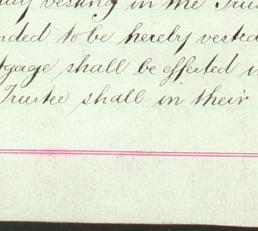 vesting in the Trus
nded to be hereby vested
tgage shall be effected i
Trustee shall in their